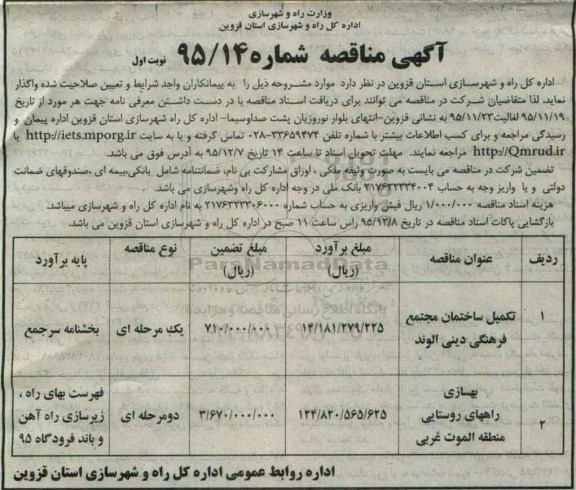 وزارت راه و شهرسازی
اداره کل راه و شهرسازی استان قزوین
آگهی مناقصه شماره ۹۵/۱۴ نوبت اول
اداره کل راه و شهرسازی استان قزوین در نظر دارد موارد مشروحه ذیل را به پیمانکاران واجد شرایط و تعیین صلاحیت شده واگذار
نماید، لذا متقاضیان شرکت در مناقصه می توانند برای دریافت اسناد مناقصه با در دست داشتن معرفی نامه جهت هر مورد از تاریخ
۹۵/۱۱/۱۹ لغایت ۹۵/۱۱/۲۳ به نشانی قزوین-انتهای بلوار نوروزیان پشت صداوسیما- اداره کل راه و شهرسازی استان قزوین اداره پیمان و
رسیدگی مراجعه و برای کسب اطلاعات بیشتر با شماره تلفن ۳۳۶۵۹۴۷۴-۰۲۸ تماس گرفته و یا به سایت http://iets.mporg.ir یا
http://Qmrud.ir مراجعه نمایند. مهلت تحویل اسناد تا ساعت ۱۴ تاریخ ۹۵/۱۲/۷ به آدرس فوق می باشد.
تضمین شرکت در مناقصه می بایست به صورت وثیقه ملکی ، اوراق مشارکت بی نام، ضمانتنامه شامل بانکی،بیمه ای ،صندوقهای ضمانت
دولتی و یا واریز وجه به حساب ۲۱۷۶۲۲۲۳۴۰۰۴ بانک ملی در وجه اداره کل راه وشهرسازی می باشد.
هزینه اسناد مناقصه ۱/۰۰۰/۰۰۰ ریال فیش واریزی به حساب شماره ۲۱۷۶۲۲۲۳۰۶۰۰۰ به نام اداره کل راه و شهرسازی میباشد.
بازگشایی پاکات اسناد مناقصه در تاریخ ۹۵/۱۲/۸ راس ساعت ۱۱ صبح در اداره کل راه و شهرسازی استان قزوین می باشد.
ردیف عنوان مناقصه مبلغ برآورد (ریال) مبلغ تضمین (ریال) نوع مناقصه پایه برآورد
۱ تکمیل ساختمان مجتمع فرهنگی دینی الوند ۱۴/۱۸۱/۲۷۹/۲۲۵ ۷۱۰/۰۰۰/۰۰۰ یک مرحله ای بخشنامه سرجمع
۲ بهسازی راههای روستایی منطقه الموت غربی ۱۲۴/۸۲۰/۵۶۵/۶۲۵ ۳/۶۷۰/۰۰۰/۰۰۰ دومرحله ای فهرست بهای راه ، زیرسازی راه آهن و باند فرودگاه ۹۵
اداره روابط عمومی اداره کل راه و شهرسازی استان قزوین